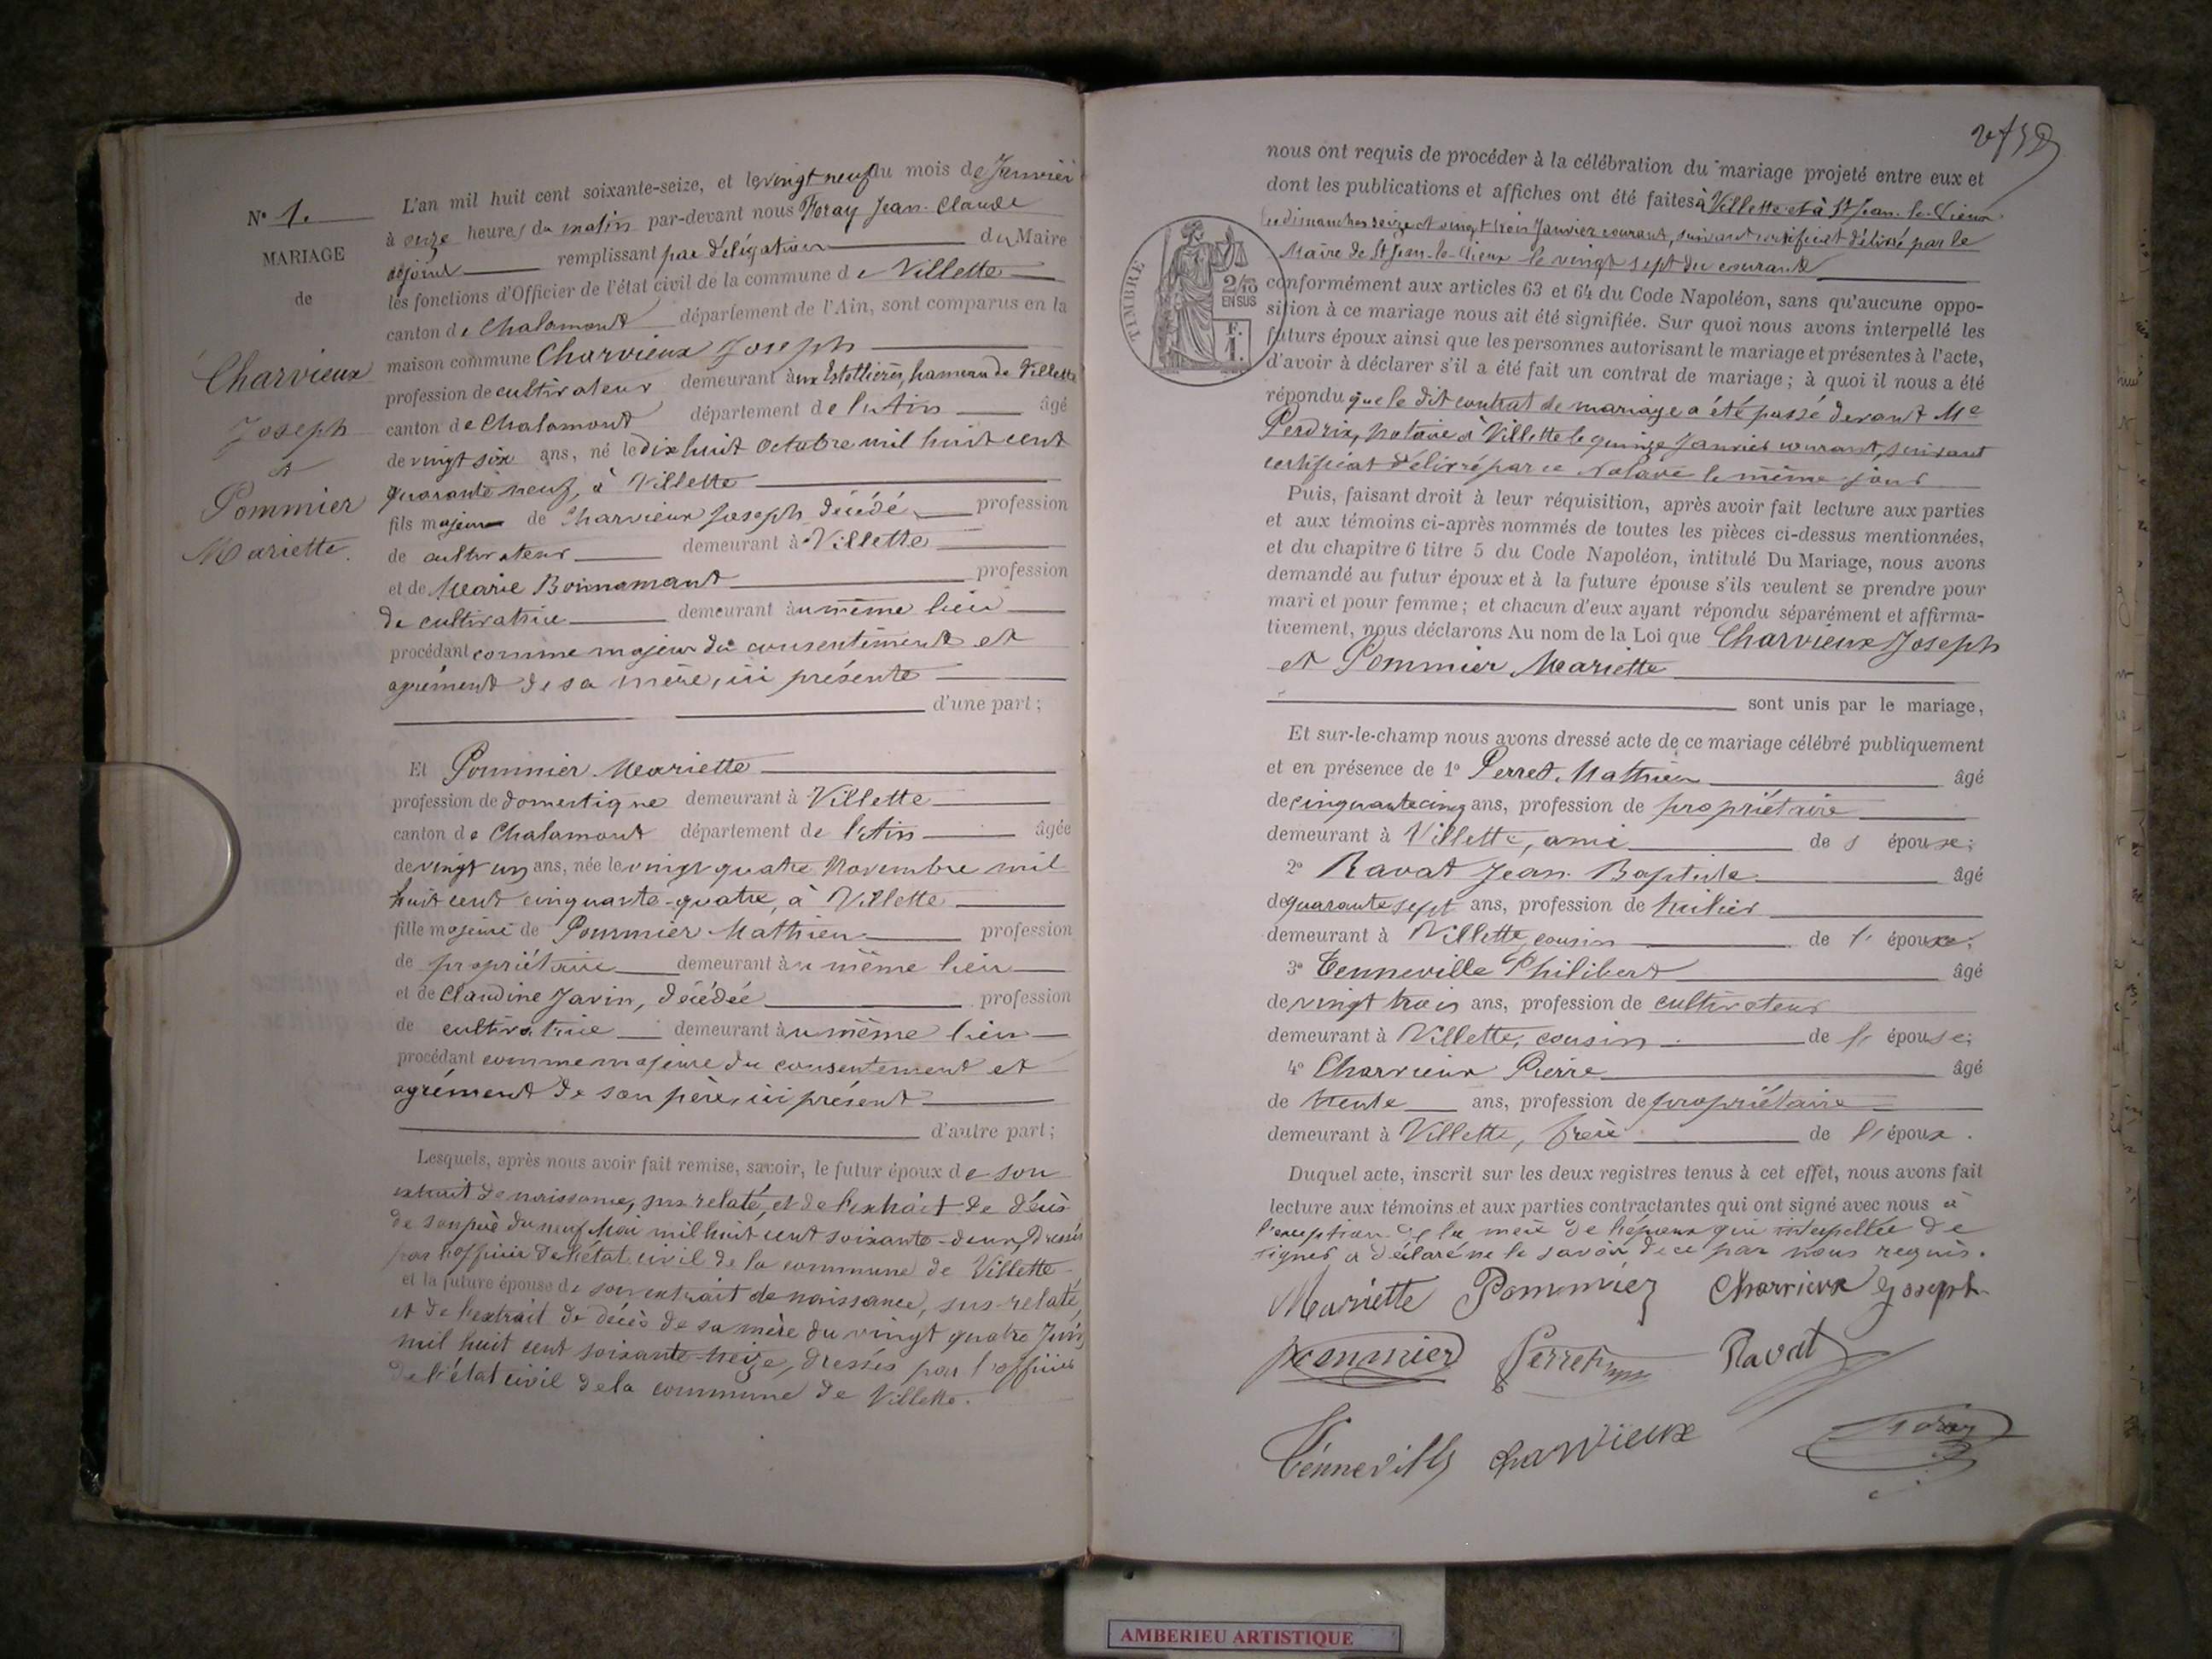 N° 1.
MARIAGE
de
Charvieux
Joseph
et
Pommier
Mariette.
L'an mil huit cent soixante-seize, et le vingt neuf du mois de Janvier
à onze heures du matin par-devant nous Foray Jean-Claude
adjoint remplissant par délégation du Maire
les fonctions d'Officier de l'état civil de la commune de Villette
canton de Chalamont département de l'Ain, sont comparus en la
maison commune Charvieux Joseph
profession de cultivateur demeurant aux hameau de Villette
canton de Chalamont département de l'Ain âgé
de vingt six ans, né le dix huit Octobre mil huit cent
quarante neuf, à Villette
fils majeur de Charvieux Joseph décédé profession
de cultivateur demeurant à Villette
et de Marie Bonnamant profession
de cultivatrice demeurant au même lieu
procédant comme majeur du consentement et
agrément de sa mère, ici présente
d'une part;
Et Pommier Mariette
profession de domestique demeurant à Villette
canton de Chalamont département de l'Ain âgée
de vingt un ans, née le vingt quatre Novembre mil
huit cent cinquante-quatre, à Villette
fille majeure de Pommier Mathieu profession
de propriétaire demeurant au même lieu
et de Claudine Javin, décédée profession
de cultivatrice demeurant au même lieu
procédant comme majeure du consentement et
agrément de son père, ici présent
d'autre part;
Lesquels, après nous avoir fait remise, savoir, le futur époux de son
extrait de naissance, sus relaté, et de l'extrait de décès
de son père du neuf Mai mil huit cent soixante-deux, dressés
par l'officier de l'état civil de la commune de Villette
et la future épouse de son extrait de naissance, sus-relaté,
et de l'extrait de décès de sa mère du vingt quatre Juin
mil huit cent soixante-treize, dressés par l'officier
de l'état civil de la commune de Villette.
nous ont requis de procéder à la célébration du mariage projeté entre eux et
dont les publications et affiches ont été faites à Villette et à St Jean-le-Vieux
les dimanches seize et vingt trois Janvier courant, suivant certificat délivré par le
Maire de St Jean-le-Vieux le vingt sept du courant
TIMBRE
2/10
EN SUS
F.
1.
conformément aux articles 63 et 64 du Code Napoléon, sans qu'aucune oppo-
sition à ce mariage nous ait été signifiée. Sur quoi nous avons interpellé les
futurs époux ainsi que les personnes autorisant le mariage et présentes à l'acte,
d'avoir à déclarer s'il a été fait un contrat de mariage; à quoi il nous a été
répondu que le dit contrat de mariage a été passé devant Me
Perdrix, Notaire à Villette le quinze Janvier courant, suivant
certificat délivré par ce Notaire le même jour
Puis, faisant droit à leur réquisition, après avoir fait lecture aux parties
et aux témoins ci-après nommés de toutes les pièces ci-dessus mentionnées,
et du chapitre 6 titre 5 du Code Napoléon, intitulé Du Mariage, nous avons
demandé au futur époux et à la future épouse s'ils veulent se prendre pour
mari et pour femme; et chacun d'eux ayant répondu séparément et affirma-
tivement, nous déclarons Au nom de la Loi que Charvieux Joseph
et Pommier Mariette
sont unis par le mariage,
Et sur-le-champ nous avons dressé acte de ce mariage célébré publiquement
et en présence de 1° Perret Mathieu âgé
de cinquante cinq ans, profession de propriétaire
demeurant à Villette, ami de s épouse;
2° Ravat Jean Baptiste âgé
de quarante sept ans, profession de
demeurant à Villette, cousin de l' épouse;
3° Tenneville Philibert âgé
de vingt trois ans, profession de cultivateur
demeurant à Villette, cousin de l' épouse;
4° Charvieux Pierre âgé
de trente ans, profession de propriétaire
demeurant à Villette, frère de l' époux.
Duquel acte, inscrit sur les deux registres tenus à cet effet, nous avons fait
lecture aux témoins et aux parties contractantes qui ont signé avec nous à
l'exception de la mère de l'époux qui interpellée de
signer a déclaré ne le savoir de ce par nous requis.
Mariette Pommier Charvieux Joseph
pommier Perret Ravat
Tenneville charvieux Foray
AMBERIEU ARTISTIQUE